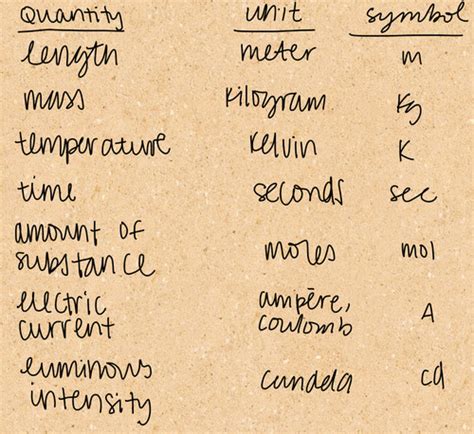 Quantity unit symbol
length meter m
mass kilogram kg
temperature kelvin K
time seconds sec
amount of
substance moles mol
electric ampère,
current coulomb A
luminous
intensity candela cd